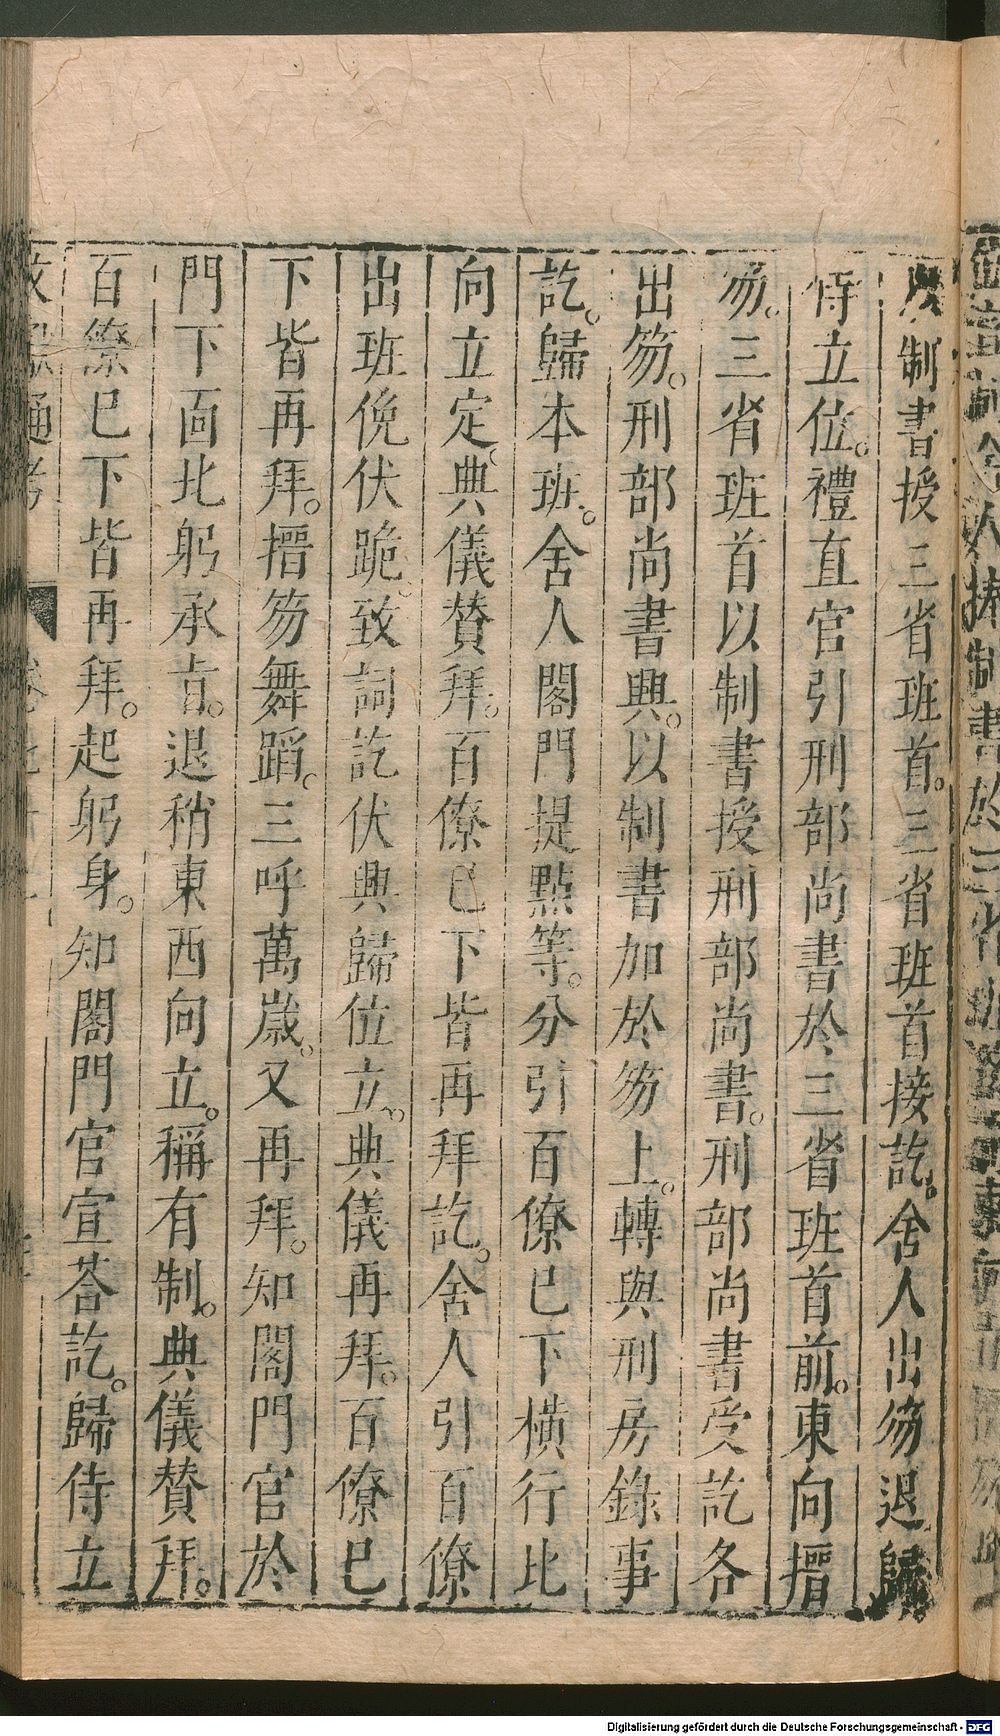 以制書授三省班首。三省班首接訖。舍人出笏退歸
侍立位。禮直官引刑部尚書於三省班首前。東向搢
笏。三省班首以制書授刑部尚書。刑部尚書受訖各
出笏。刑部尚書興。以制書加於笏上。轉與刑房錄事
訖。歸本班。舍人閣門提點等。分引百僚巳下橫行北
向立定。典儀賛拜。百僚巳下皆再拜訖。舍人引百僚
出班俛伏跪。致詞訖伏興歸位立。典儀再拜。百僚巳
下皆再拜。搢笏舞蹈。三呼萬歲。又再拜。知閣門官於
門下靣北躬承㫖。退稍東西向立。稱有制。典儀賛拜。
百僚巳下皆再拜。起躬身。知閣門官宣荅訖。歸侍立
Digitalisierung gefördert durch die Deutsche Forschungsgemeinschaft - DFG